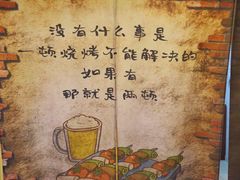 没有什么事是
一顿烧烤不能解决的
如果有
那就是两顿